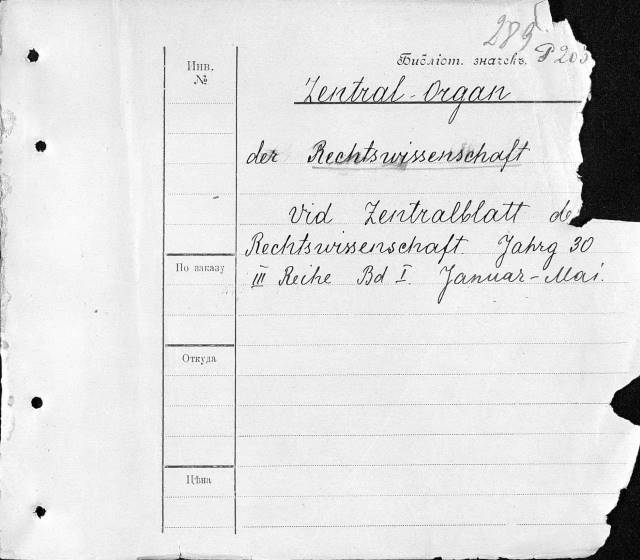 289
Инв.
№
Библіот. значекъ.
Zentral-Organ
der Rechtswissenschaft
Vid Zentralblatt
Rechtswissenschaft. Jahrg 30
III Reihe Bd I. Januar-Mai.
По заказу
Откуда
Цѣна